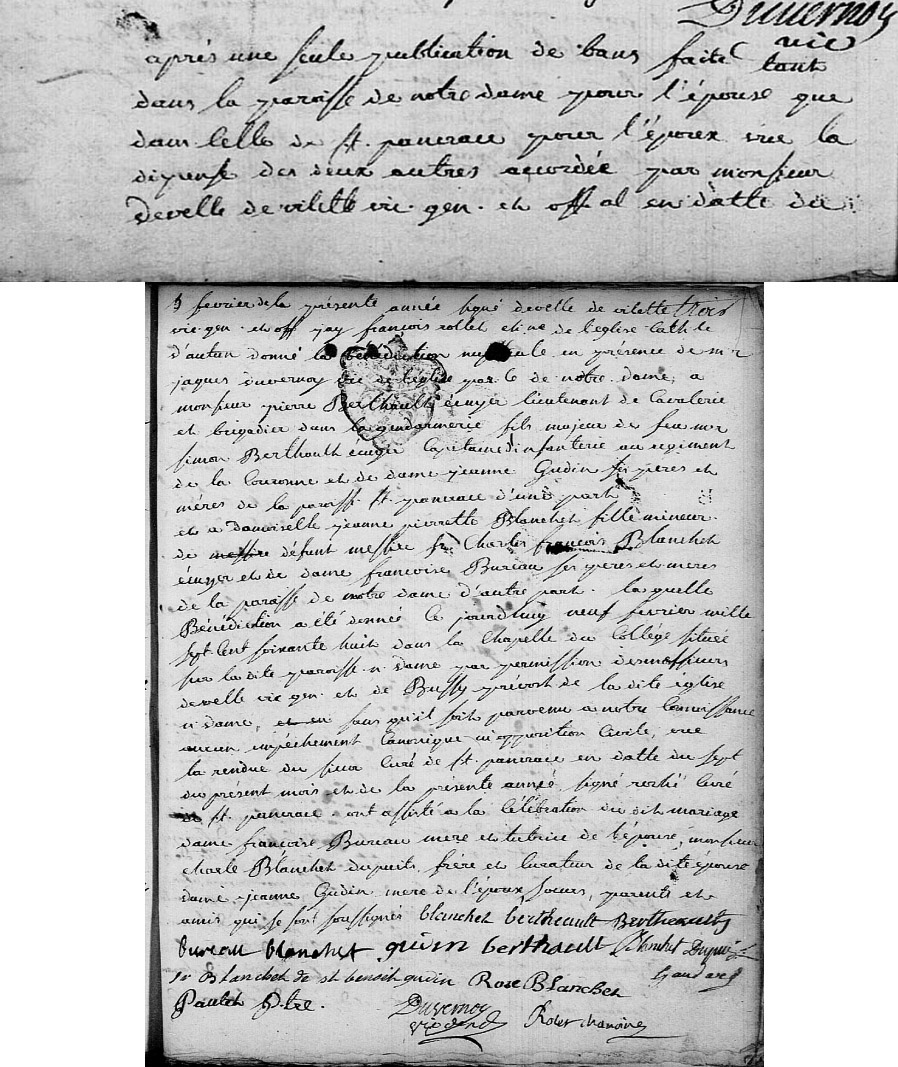 Duvernoy
vic
après une seule publication de bans faite tant
dans la paroisse de notre dame pour l'épouse que
dans celle de st. pancrace pour l'époux vue la
dispense des deux autres accordée par monsieur
develle de vilette vic. gen. et off al en datte du
fevrier de la présente année signé develle de vilette trois
vic gen. et off jay françois rollet de l'église cath le
d'autun donné la bénédiction nuptiale en présence de mr
jaques duvernoy vic de l'église par le de notre dame, a
monsieur pierre Berthault écuyer lieutenant de Cavalerie
et brigadier dans la gendarmerie fils majeur de feu mr
simon Berthault écuyer Capitaine d'infanterie au regiment
de la Couronne et de dame jeanne Gudin ses peres et
méres de la paroisse st pancrace d'une part
et a damoiselle jeanne pierrette Blanchet fille mineur
de messire défunt messire Charles françois Blanchet
écuyer et de dame francoise Bureau ses peres et meres
de la paroisse de notre dame d'autre part. laquelle
Bénédiction a été donné ce jourdhuy neuf fevrier mille
sept cent soixante huit dans la Chapelle du Collége située
sur la dite paroisse n. dame par permission de messieurs
develle vic gen. et de Bussy prévost de la dite église
n. dame, et en sans qu'il soit parvenu a notre Connoissance
aucun empéchement Canonique ni opposition Civile, vue
la rendue du sieur Curé de st pancrace en datte du sept
du présent mois et de la présente année signé roché Curé
de st pancrace. ont assisté a la Célébration du dit mariage
dame francoise Bureau mere et tutrice de l'épouse, monsieur
charle Blanchet dupuits frére et Curateur de la dite épouse
dame jeanne Gudin mere de l'époux soeurs, parents et
amis qui se sont soussignés blanchet bertheault Bertheault
bureau blanchet gudin berthault Blanchet Dupuis
Blanchet de st benoit gudin Rose Blanchet
Pautet Ptre. Duvernoy
Rolet chanoine